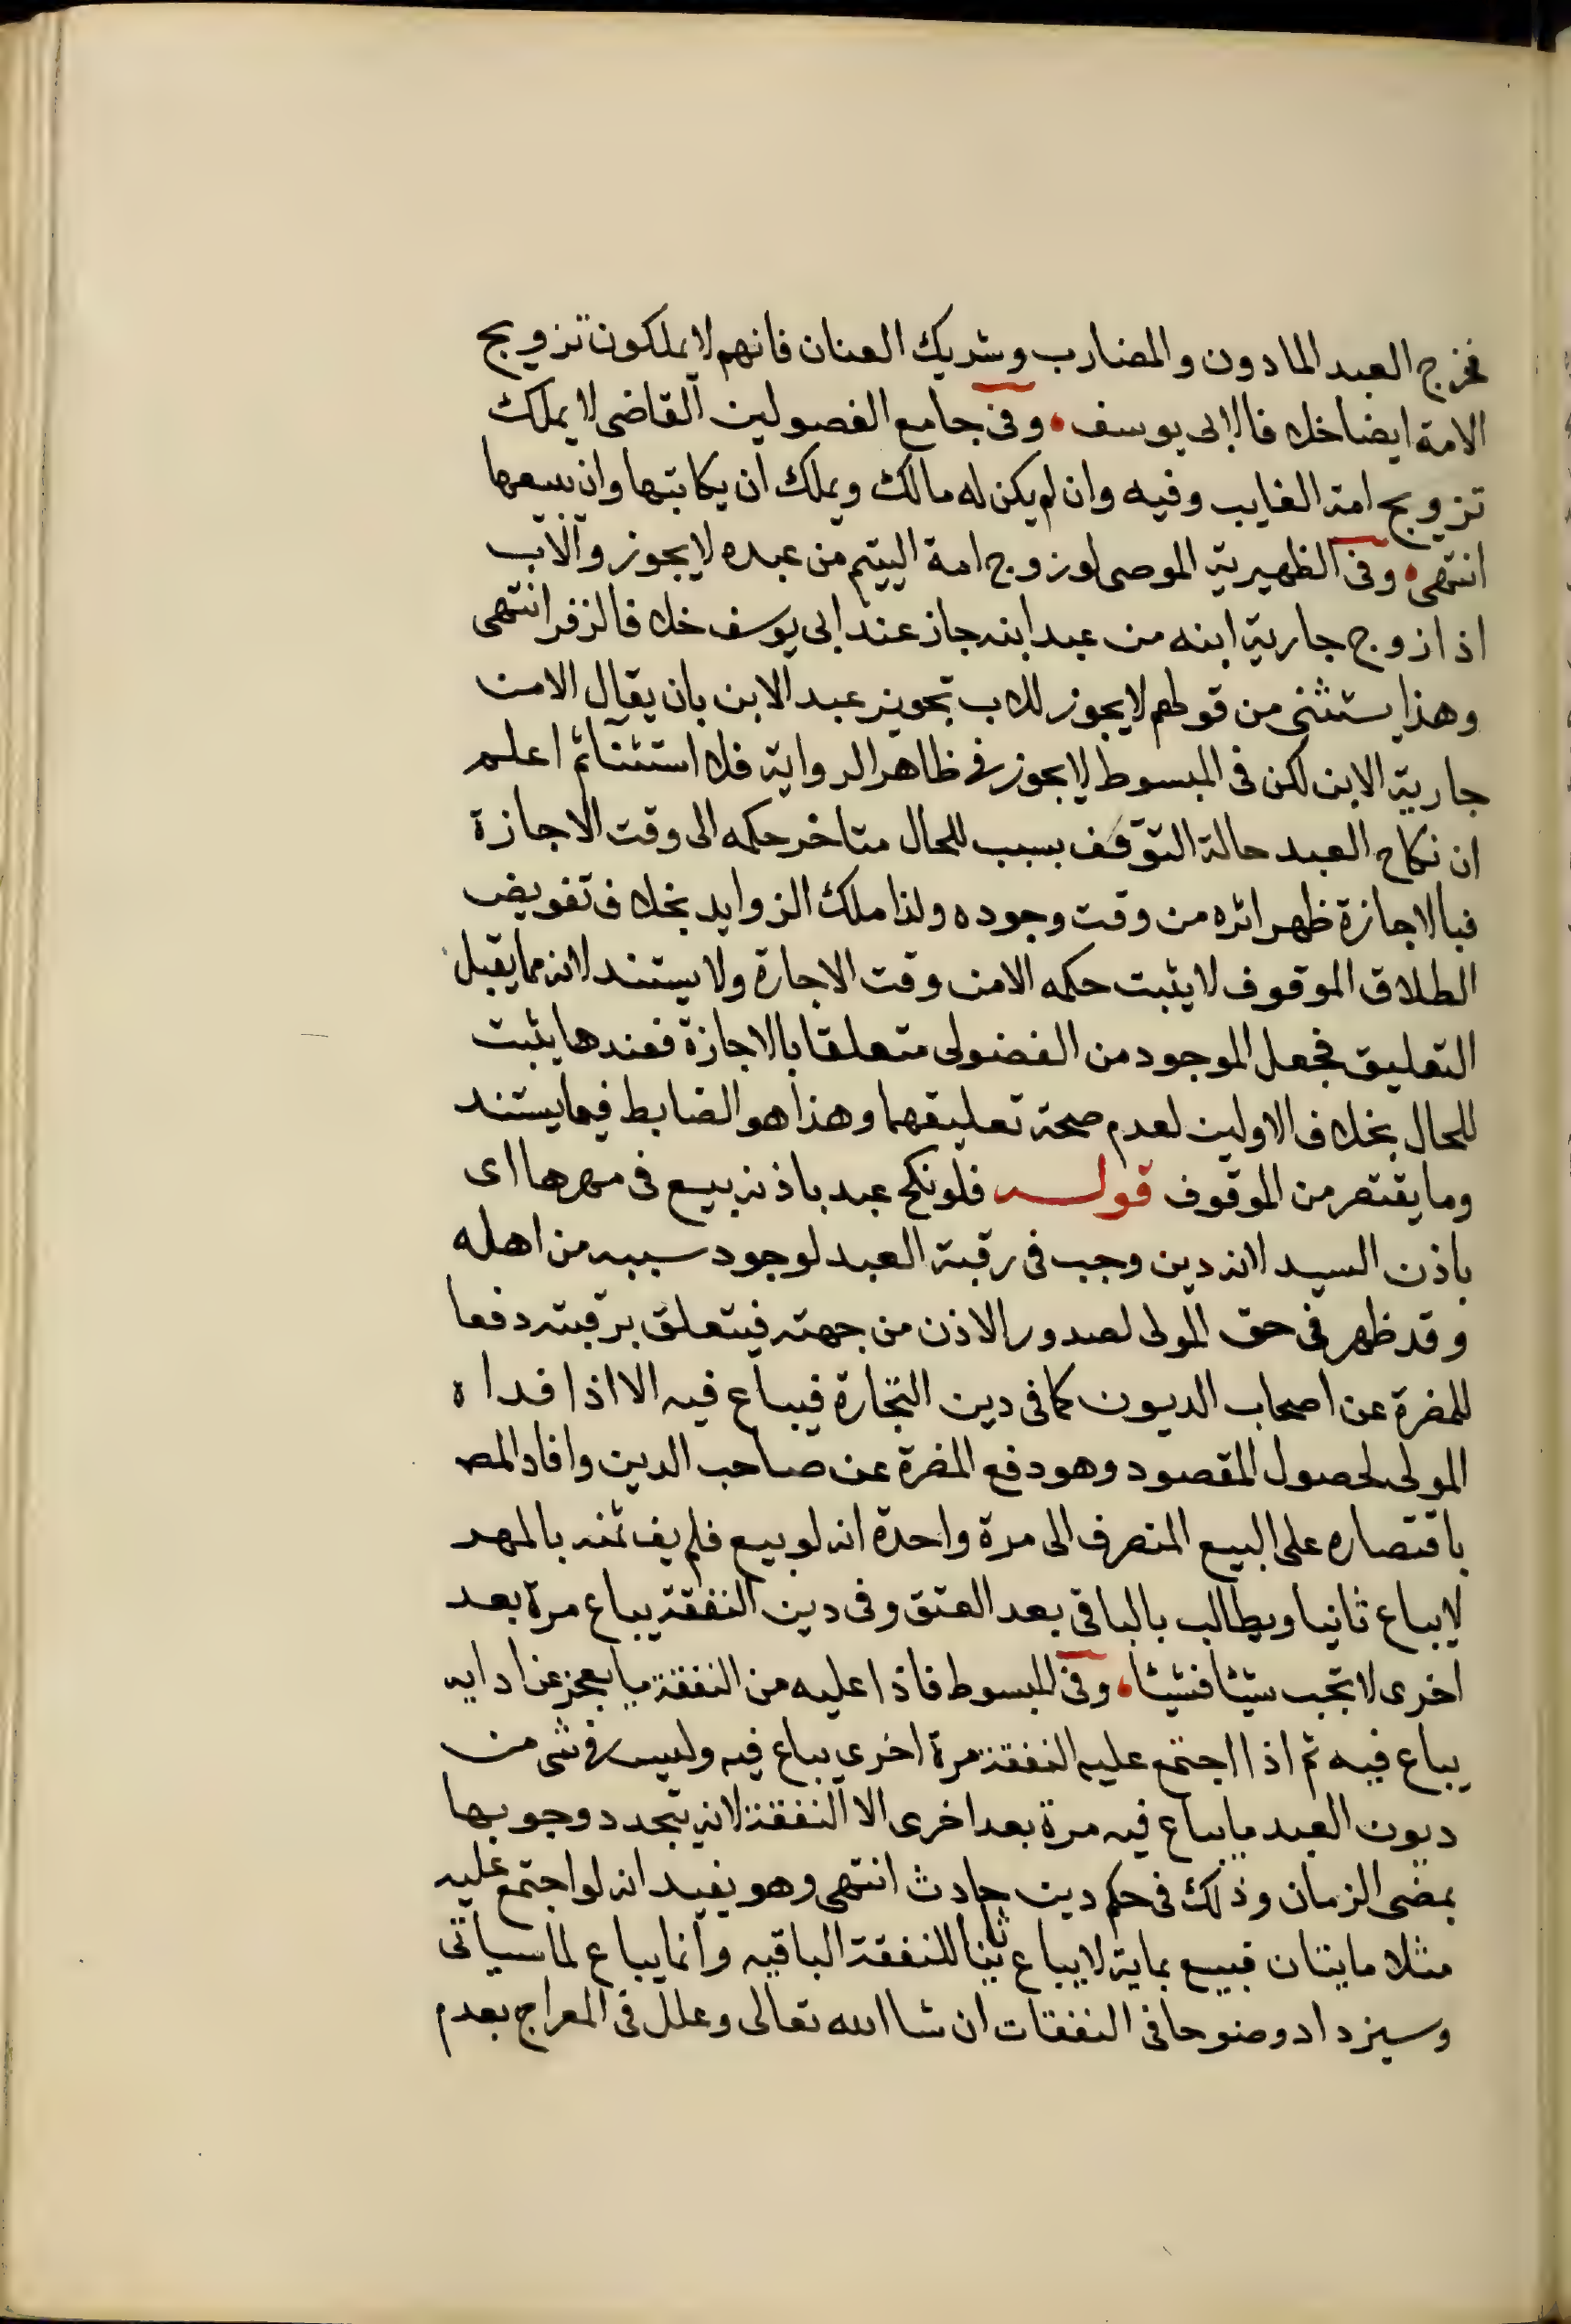 فخرج العبد المادون والمضارب وشريك العنان فانهم لا يملكون تزويج
الامة ايضا خلافا لابى يوسف وفى جامع الفصولين القاضى لا يملك
تزويج امة الغايب وفيه وان لم يكن له مالك ويملك ان يكاتبها وان يبيعها
انتهى وفى الظهيرية الموصى لو زوج امة اليتيم من عبده لا يجوز والاب
اذا زوج جارية ابنه من عبد ابنه جاز عند ابى يوسف خلافا لزفر انتهى
وهذا يستثنى من قولهم لا يجوز للاب تجويز عبد الابن بان يقال الا من
جارية الابن لكن فى المبسوط لا يجوز فى ظاهر الرواية فلا استثنا ثم اعلم
ان نكاح العبد حالة التوقف بسبب للحال متاخر حكمه الى وقت الاجازة
فبالاجازة ظهر اثره من وقت وجوده ولذا ملك الزوايد بخلاف تفويض
الطلاق الموقوف لا يثبت حكمه الا من وقت الاجازة ولا يستند لانه مما يقبل
التعليق فجعل الموجود من الفضولى متعلقا بالاجازة فعندها يثبت
للحال بخلاف الاولين لعدم صحة تعليقهما وهذا هو الضابط فيما يستند
وما يقتصر من الموقوف قوله فلو نكح عبد باذنه بيع فى مهرها اى
باذن السيد لانه دين وجب فى رقبة العبد لوجود سببه من اهله
وقد ظهر فى حق المولى لصدور الاذن من جهته فيتعلق برقبته دفعا
للمضرة عن اصحاب الديون كما فى دين التجارة فيباع فيه الا اذا فداه
المولى لحصول المقصود وهو دفع المضرة عن صاحب الدين وافاد المص
باقتصاره على البيع المنصرف الى مرة واحدة انه لو بيع فلم يف ثمنه بالمهر
لا يباع ثانيا ويطالب بالباقى بعد العتق وفى دين النفقة يباع مرة بعد
اخرى لا تجب شيئا فشيئا وفى المبسوط فاذا عليه من النفقة ما يعجز عن ادايه
يباع فيه ثم اذا اجتمع عليه النفقة مرة اخرى يباع فيه وليس فى شى من
ديون العبد ما يباع فيه مرة بعد اخرى الا النفقة لانه يتجدد وجوبها
بمضى الزمان وذلك فى حكم دين حادث انتهى وهو يفيد انه لو اجتمع عليه
مثلا مايتان فبيع بماية لا يباع ثانيا للنفقة الباقيه وانما يباع لما سياتى
وسيزداد وضوحا فى النفقات ان شا الله تعالى وعلل فى المعراج بعدم